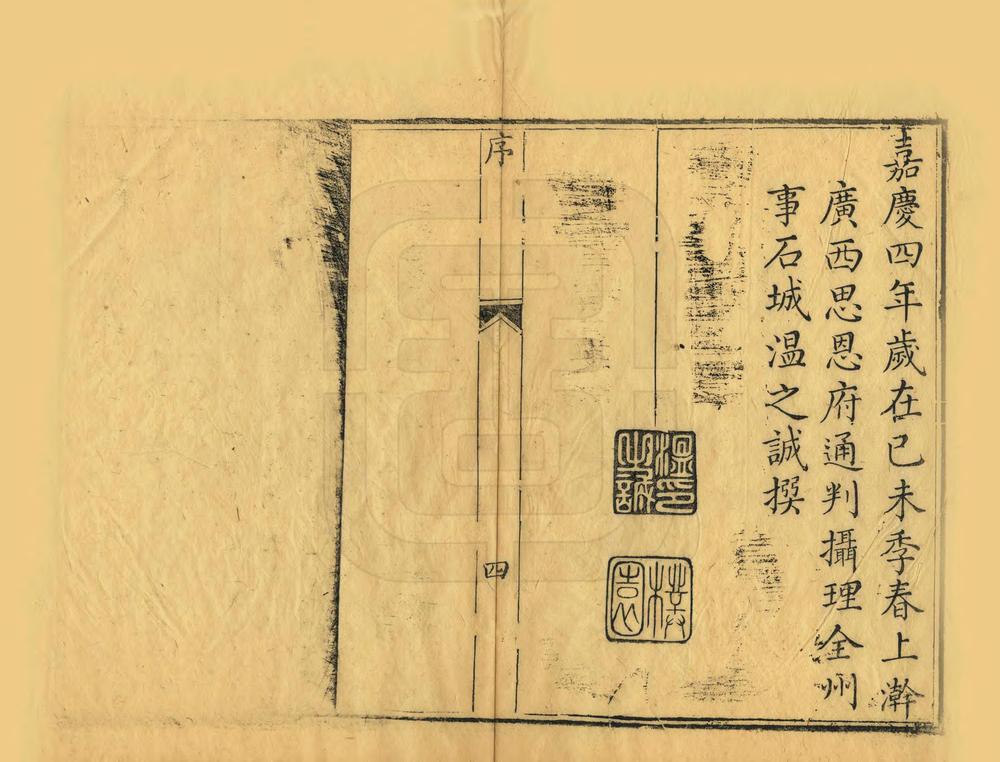 嘉慶四年歲在已未季春上澣
廣西思恩府通判攝理全州
事石城温之誠撰
温之誠印
序
四